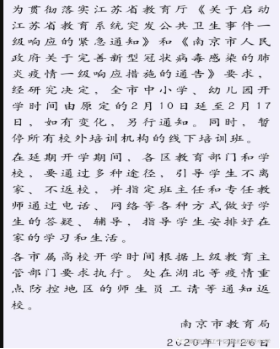 为贯彻落实江苏省教育厅《关于启动
江苏省教育系统突发公共卫生事件一
级响应的紧急通知》和《南京市人民
政府关于完善新型冠状病毒感染的肺
炎疫情一级响应措施的通告》要求,
经研究决定,全市中小学、幼儿园开
学时间由原定的2月10日延至2月17
日,如有变化,另行通知。同时,暂
停所有校外培训机构的线下培训班。
在延期开学期间,各区教育部门和学
校,要通过多种途径,引导学生不离
家、不返校,并指定班主任和专任教
师通过电话、网络等各种方式做好学
生的答疑、辅导,指导学生安排好在
家的学习和生活。
各市属高校开学时间根据上级教育主
管部门要求执行。处在湖北等疫情重
点防控地区的师生员工请等通知返
校。
南京市教育局
2020年1月26日